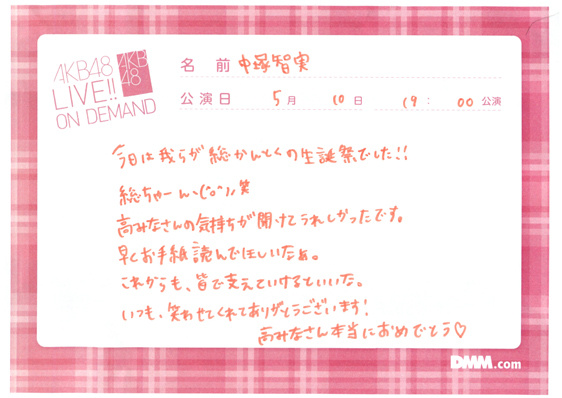 AKB48
LIVE!!
ON DEMAND
AKB
48
名 前 中塚智実
公演日 5月 10日 19: 00 公演
今日は我らが総かんとくの生誕祭でした!!
総ちゃーんヽ(°o°)ノ笑
高みなさんの気持ちが聞けてうれしかったです。
早くお手紙読んでほしいなぁ。
これからも、皆で支えていけるといいな。
いつも、笑わせてくれてありがとうございます!
高みなさん本当におめでとう♡
DMM.com